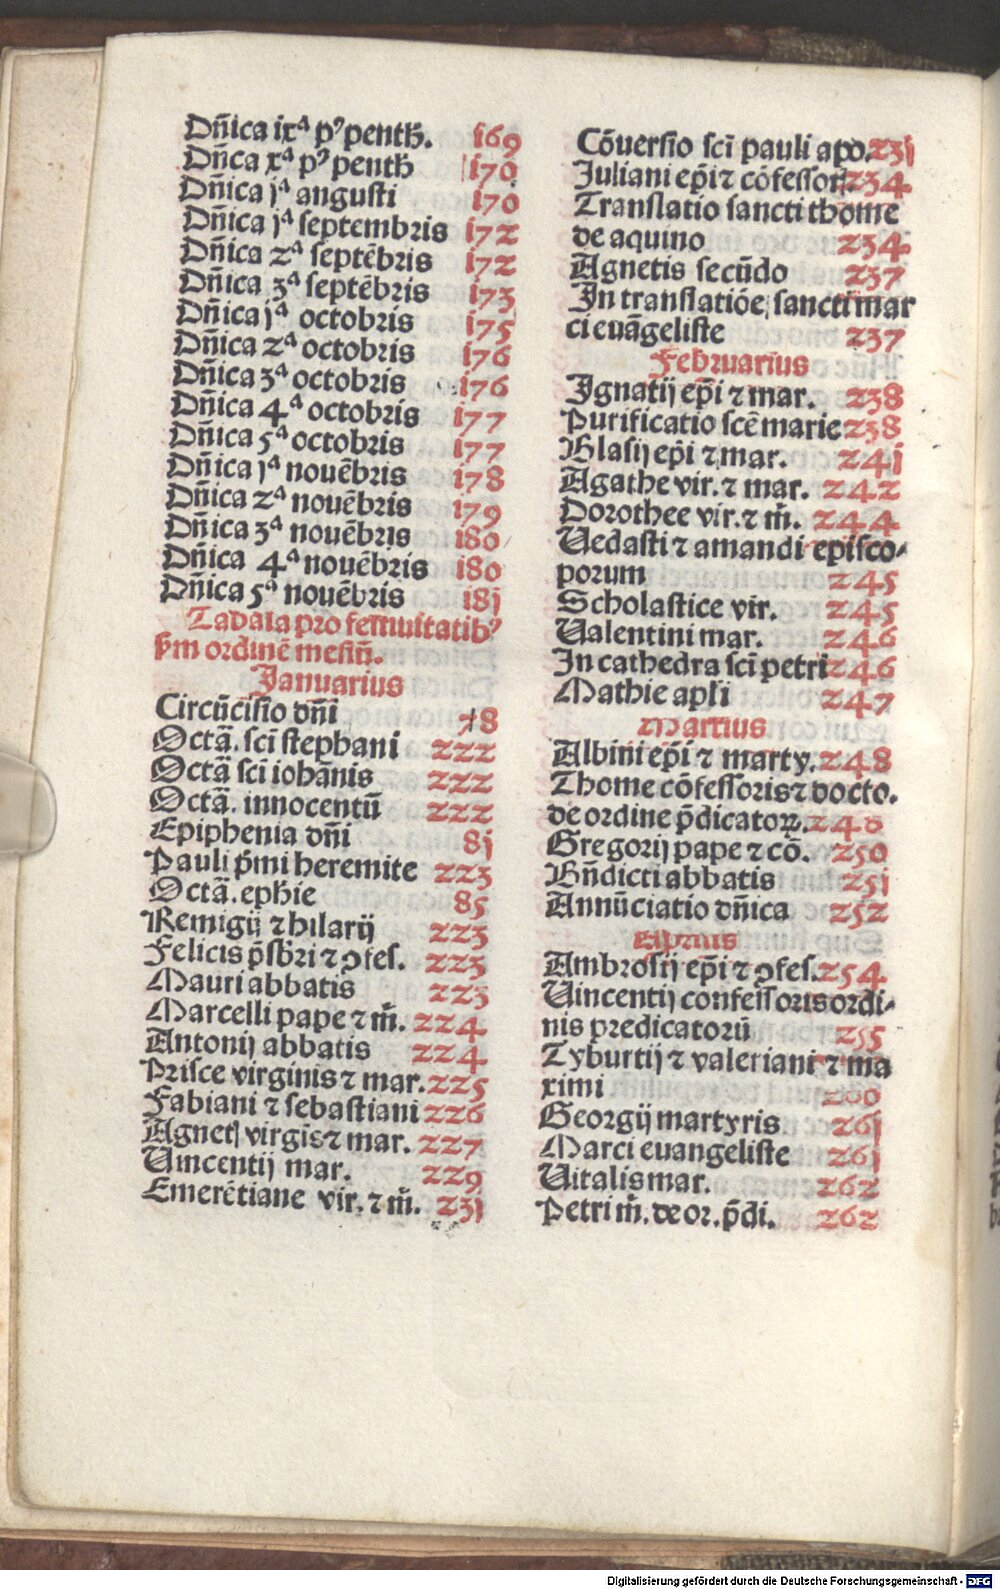 Dñica ixª pꝰ penth̄. i69
Dñca xª pꝰ penth̄ i70
Dñica jª angusti i70
Dñica jª septembris i72
Dñica 2ª septēbris i72
Dñica 3ª septēbris i73
Dñica jª octobris i75
Dñica 2ª octobris i76
Dñica 3ª octobris i76
Dñica 4ª octobris i77
Dñica 5ª octobris i77
Dñica jª nouēbris i78
Dñica 2ª nouēbris i79
Dñica 3ª nouēbris i80
Dñica 4ª nouēbris i80
Dñica 5ª nouēbris i8j
Tabala pro festiuitatibꝰ
ẜm ordinē mēsiū.
Januarius
Circūcisio dñi 78
Octā. scī stephani 222
Octā scī iohānis 222
Octā. innocentū 222
Epiphenia dñi 8j
Pauli p̄mi heremite 223
Octā. ephie 85
Remigij ⁊ hilarij 223
Felicis p̄sbri ⁊ ꝯfes. 223
Mauri abbatis 223
Marcelli pape ⁊ m̄. 224
Antonij abbatis 224
Prisce virginis ⁊ mar. 225
Fabiani ⁊ sebastiani 226
Agnetꝭ virgis ⁊ mar. 227
Vincentij mar. 229
Emerētiane vir. ⁊ m̄. 23j
Cōuersio scī pauli apo. 23j
Juliani ep̄i ⁊ cōfessorꝭ 234
Translatio sancti thome
de aquino 234
Agnetis secūdo 237
In translatiōe sancti mar
ci euāgeliste 237
Februarius
Ignatij ep̄i ⁊ mar. 238
Purificatio scē marie 238
Blasij ep̄i ⁊ mar. 24j
Agathe vir. ⁊ mar. 242
Dorothee vir. ⁊ m̄. 244
Vedasti ⁊ amandi episco-
porum 245
Scholastice vir. 245
Valentini mar. 246
In cathedra scī petri 246
Mathie apl̄i 247
Martius
Albini ep̄i ⁊ marty. 248
Thome cōfessoris ⁊ docto.
de ordine p̄dicatoꝝ. 248
Gregorij pape ⁊ cō. 250
Bn̄dicti abbatis 25j
Annūciatio dñica 252
Aprilis
Ambrosij ep̄i ⁊ ꝯfes. 254
Vincentij confessoris ordi-
nis predicatorū 255
Tyburtij ⁊ valeriani ⁊ ma
ximi 260
Georgij martyris 26j
Marci euangeliste 26j
Vitalis mar. 262
Petri m̄. de or. p̄di. 262
Digitalisierung gefördert durch die Deutsche Forschungsgemeinschaft - DFG